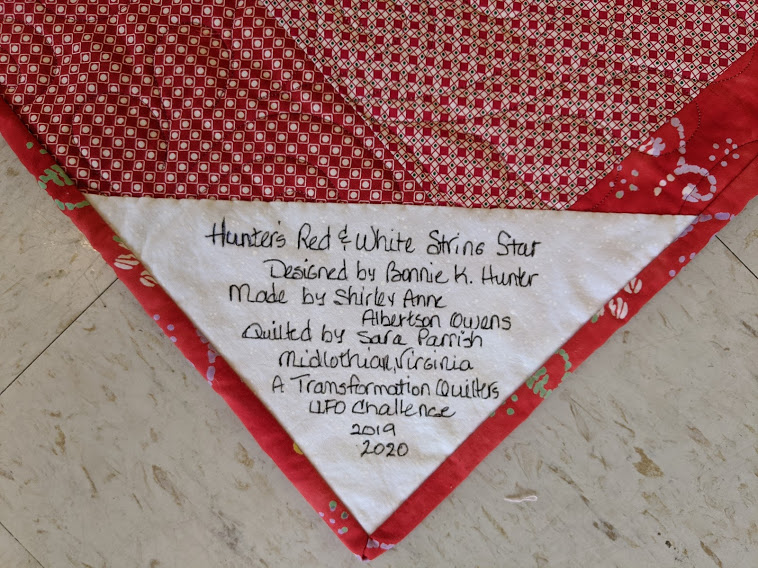 Hunter's Red & White String Star
Designed by Bonnie K. Hunter
Made by Shirley Anne
Albertson Owens
Quilted by Sara Parrish
Midlothian, Virginia
A Transformation Quilters
UFO Challenge
2019
2020